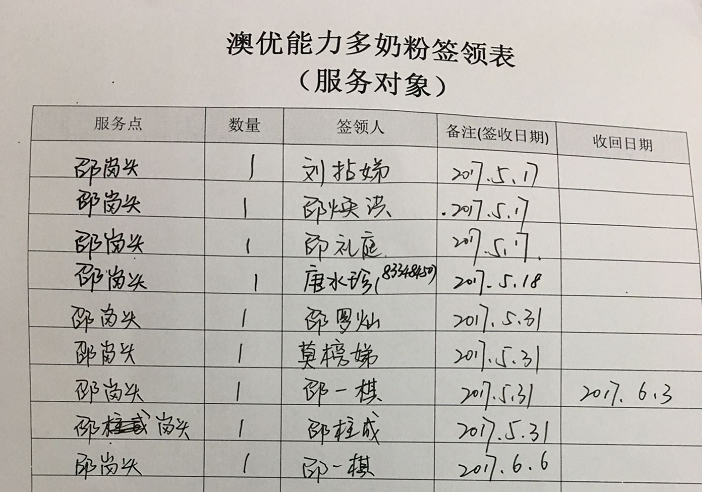 澳优能力多奶粉签领表
（服务对象）
服务点 数量 签领人 备注(签收日期) 收回日期
邵岗头 1 刘拈娣 2017.5.17
邵岗头 1 邵焕洪 2017.5.17
邵岗头 1 邵礼庭 2017.5.17.
邵岗头 1 唐水珍(83348450) 2017.5.18
邵岗头 1 邵灿 2017.5.31
邵岗头 1 莫榜娣 2017.5.31
邵岗头 1 邵一棋 2017.5.31 2017.6.3
邵岗头 1 邵柱成 2017.5.31
邵岗头 1 邵一棋 2017.6.6